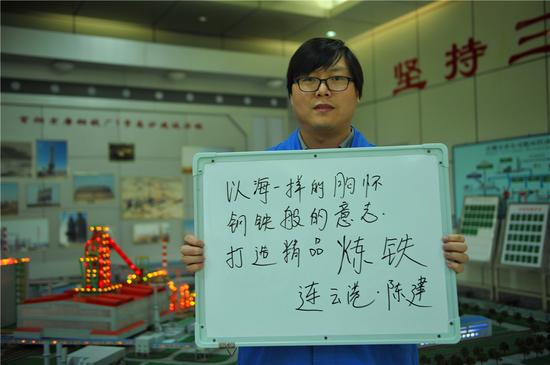 坚持三
以海一样的胸怀
钢铁般的意志.
打造精品 炼铁
连云港·陈建